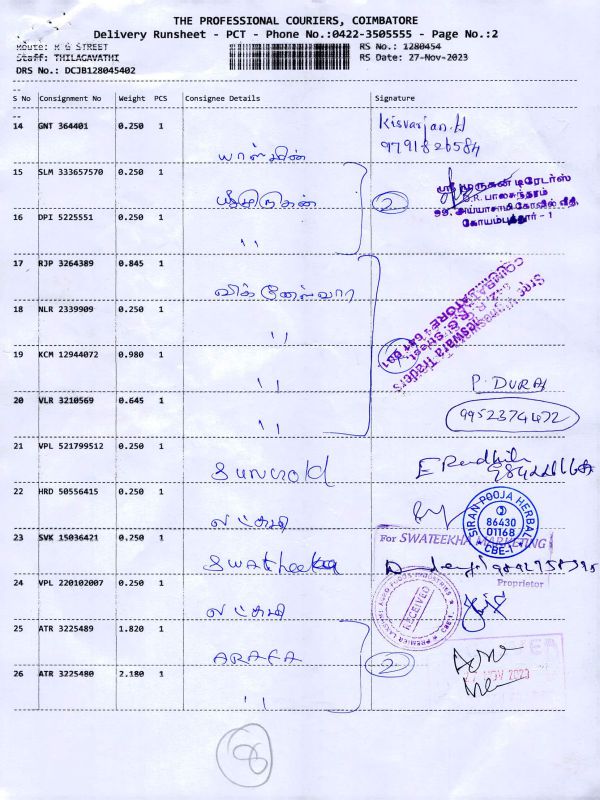 THE PROFESSIONAL COURIERS, COIMBATORE
Delivery Runsheet - PCT - Phone No.:0422-3505555 - Page No.:2
Route: M G STREET
RS No.: 1280454
Staff: THILAGAVATHI
RS Date: 27-Nov-2023
DRS No.: DCJB128045402
S No Consignment No Weight PCS Consignee Details Signature
14 GNT 364401 0.250 1
9791826584
யாஸ்மின்
15 SLM 333657570 0.250 1
ஸ்ரீ முருகன் டிரேடர்ஸ்
G.R. பாலசுந்தரம்
99, அய்யாசாமி கோவில் வீதி,
கோயம்புத்தூர் - 1
2
16 DPI 5225551 0.250 1
"
17 RJP 3264389 0.845 1
விக்னேஸ்வரா
18 NLR 2339909 0.250 1
"
Sree Vigneswara Traders
COIMBATORE - 641 001
19 KCM 12944072 0.980 1
"
P. DURAI
20 VLR 3210569 0.645 1
9952374472
"
21 VPL 521799512 0.250 1
Suncold
22 HRD 50556415 0.250 1
லட்சுமி
SIRAN POOJA HERBAL
86430
01168
CBE-1
23 SVK 15036421 0.250 1
For SWATEEKHA MARKETING
Swatheeka
Proprietor
24 VPL 220102007 0.250 1
லட்சுமி
PREMIER LAKSHMI AGRO POOJA INDUSTRIES
RECEIVED
25 ATR 3225489 1.820 1
ARAFA
2
NOV 2023
26 ATR 3225480 2.180 1
"
8